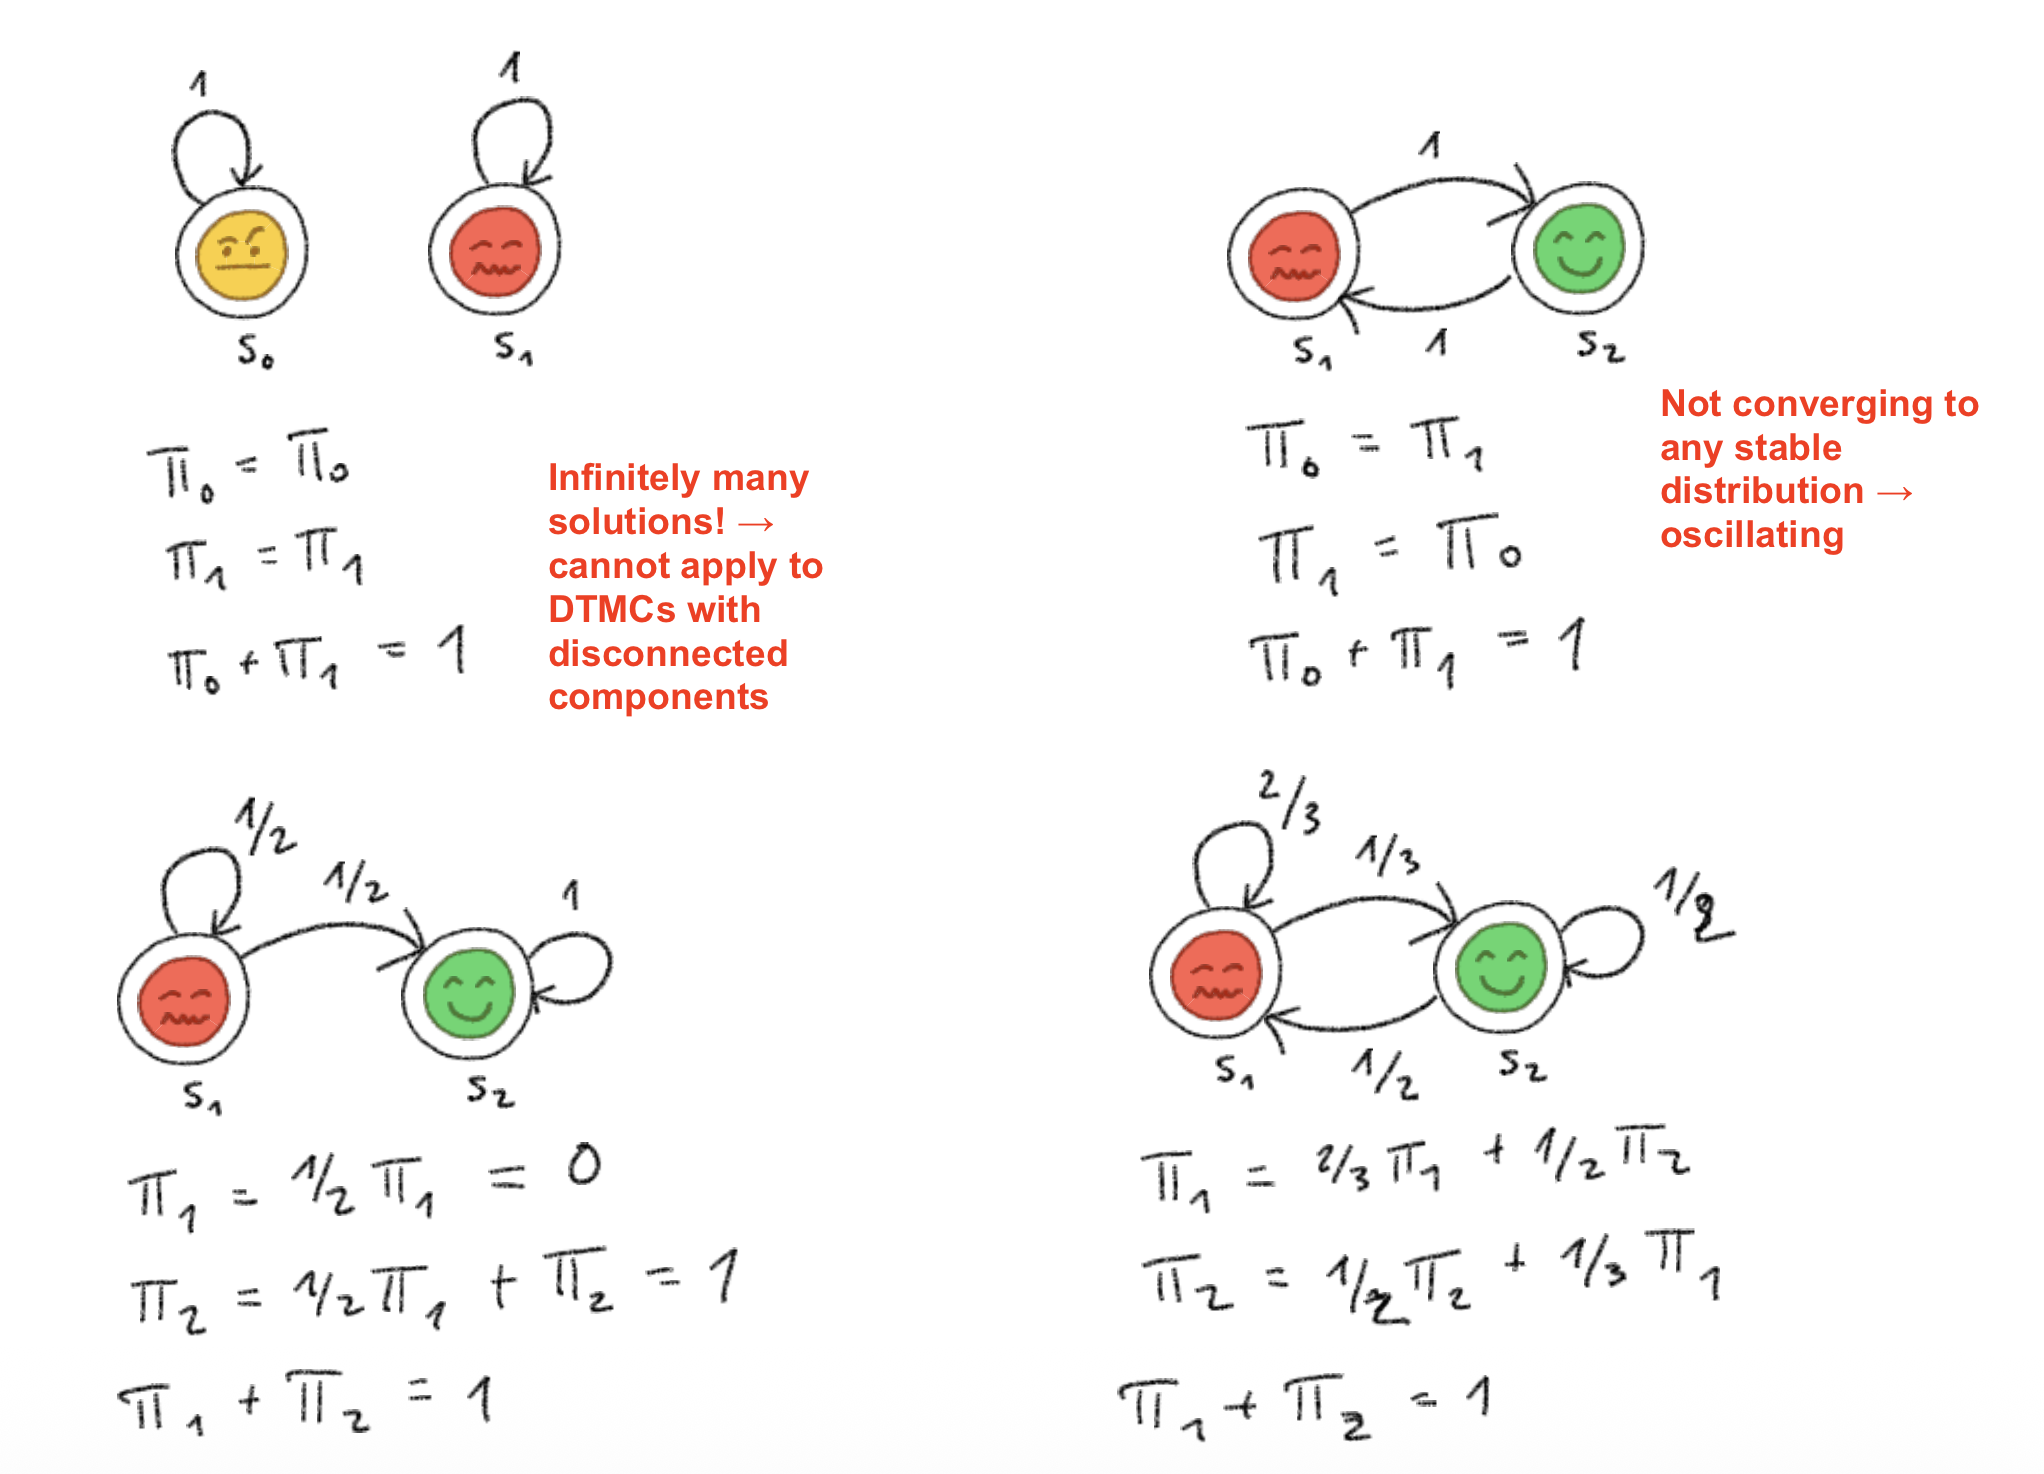 1
1
S₀
S₁
π₀ = π₀
π₁ = π₁
π₀ + π₁ = 1
Infinitely many
solutions! →
cannot apply to
DTMCs with
disconnected
components
1
1
S₁
S₂
π₀ = π₁
π₁ = π₀
π₀ + π₁ = 1
Not converging to
any stable
distribution →
oscillating
1/2
1/2
1
S₁
S₂
π₁ = 1/2 π₁ = 0
π₂ = 1/2 π₁ + π₂ = 1
π₁ + π₂ = 1
2/3
1/3
1/2
1/2
S₁
S₂
π₁ = 2/3 π₁ + 1/2 π₂
π₂ = 1/2 π₂ + 1/3 π₁
π₁ + π₂ = 1